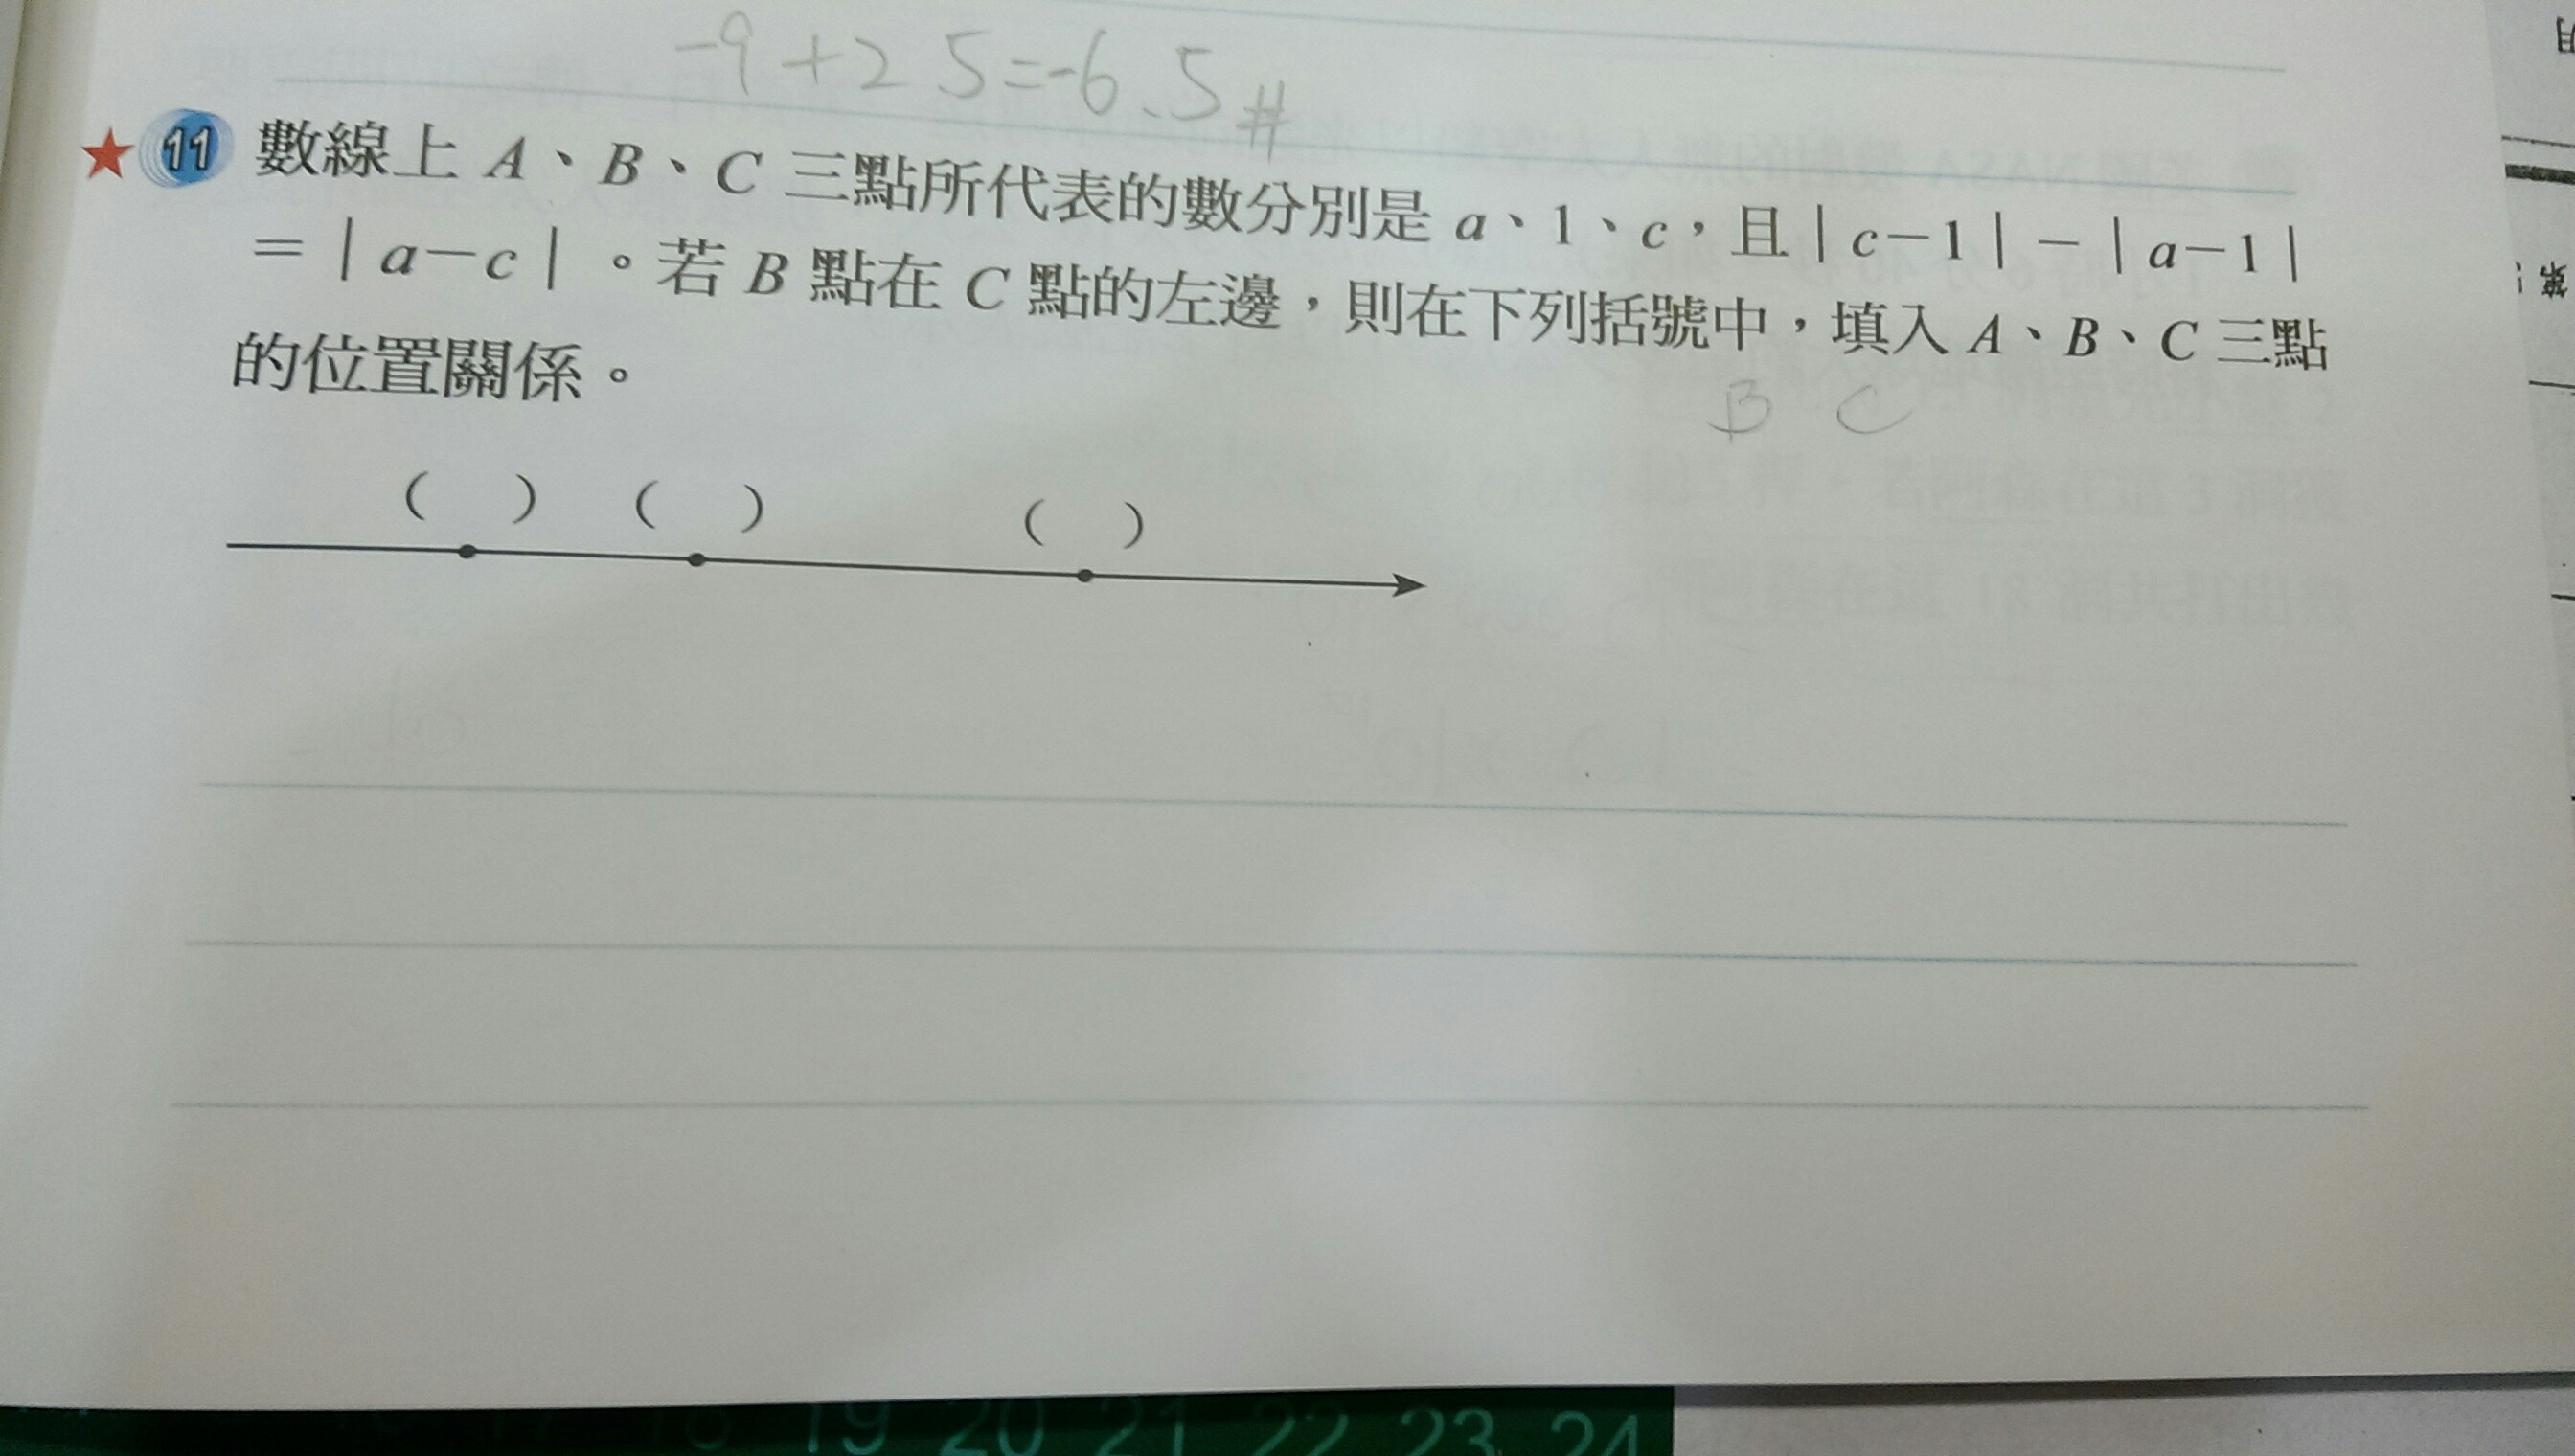 -9+2.5=-6.5#
★ 11 數線上 A、B、C 三點所代表的數分別是 a、1、c，且｜c－1｜－｜a－1｜
＝｜a－c｜。若 B 點在 C 點的左邊，則在下列括號中，填入 A、B、C 三點
的位置關係。
B C
(　) (　) (　)
19 20 21 22 23 24